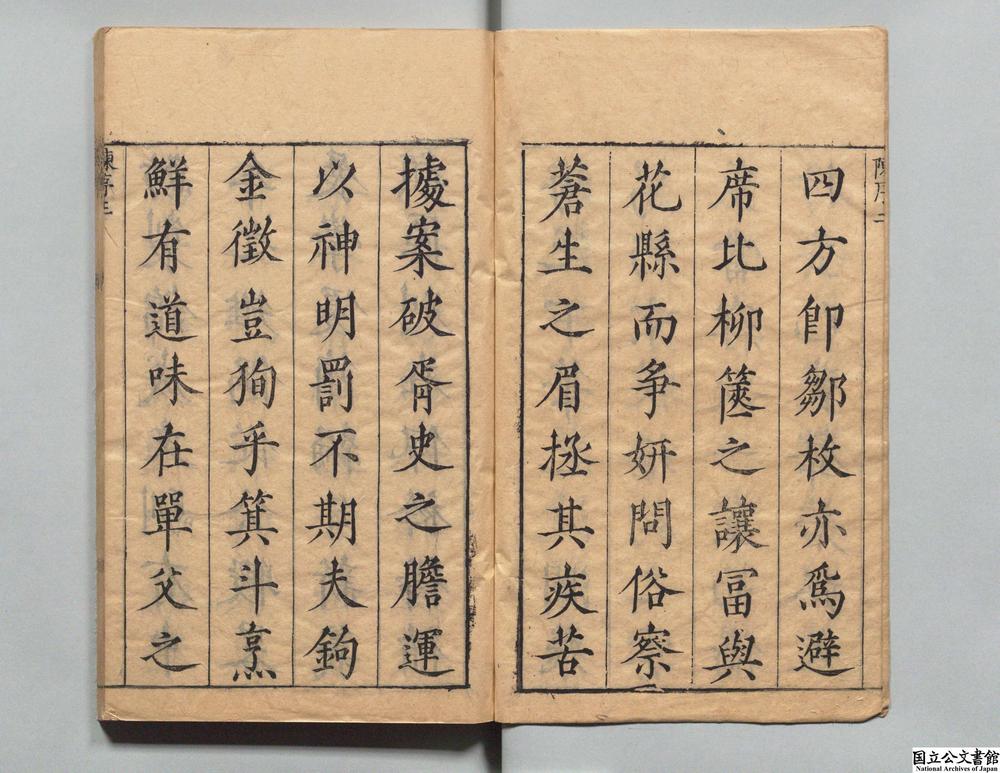 陳序二
四方卽鄒枚亦爲避
席比柳篋之讓冨與
花縣而争妍問俗察
蒼生之眉拯其疾苦
據案破胥史之膽運
以神明罰不期夫鉤
金徵豈狥乎箕斗烹
鮮有道味在單父之
陳序三
国立公文書館
National Archives of Japan